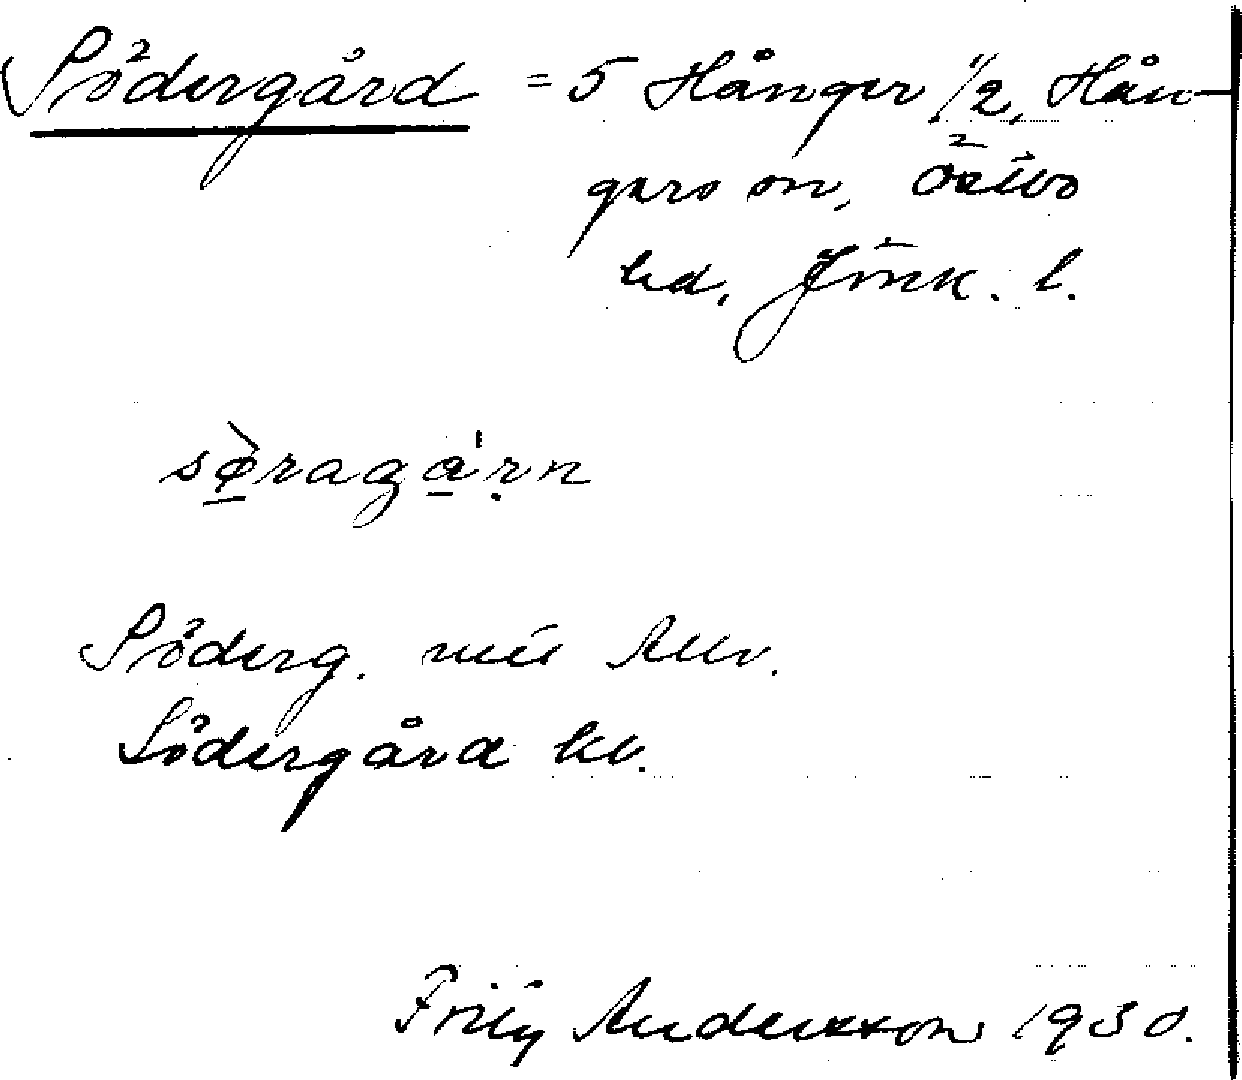 Södergård = 5 Hånger 1/2, Hån-
gers sn, Östbo
hd, Jönk. l.
sø̀ragá̱ṛn
Söderg.
Södergård kv.
Andersson 1930.